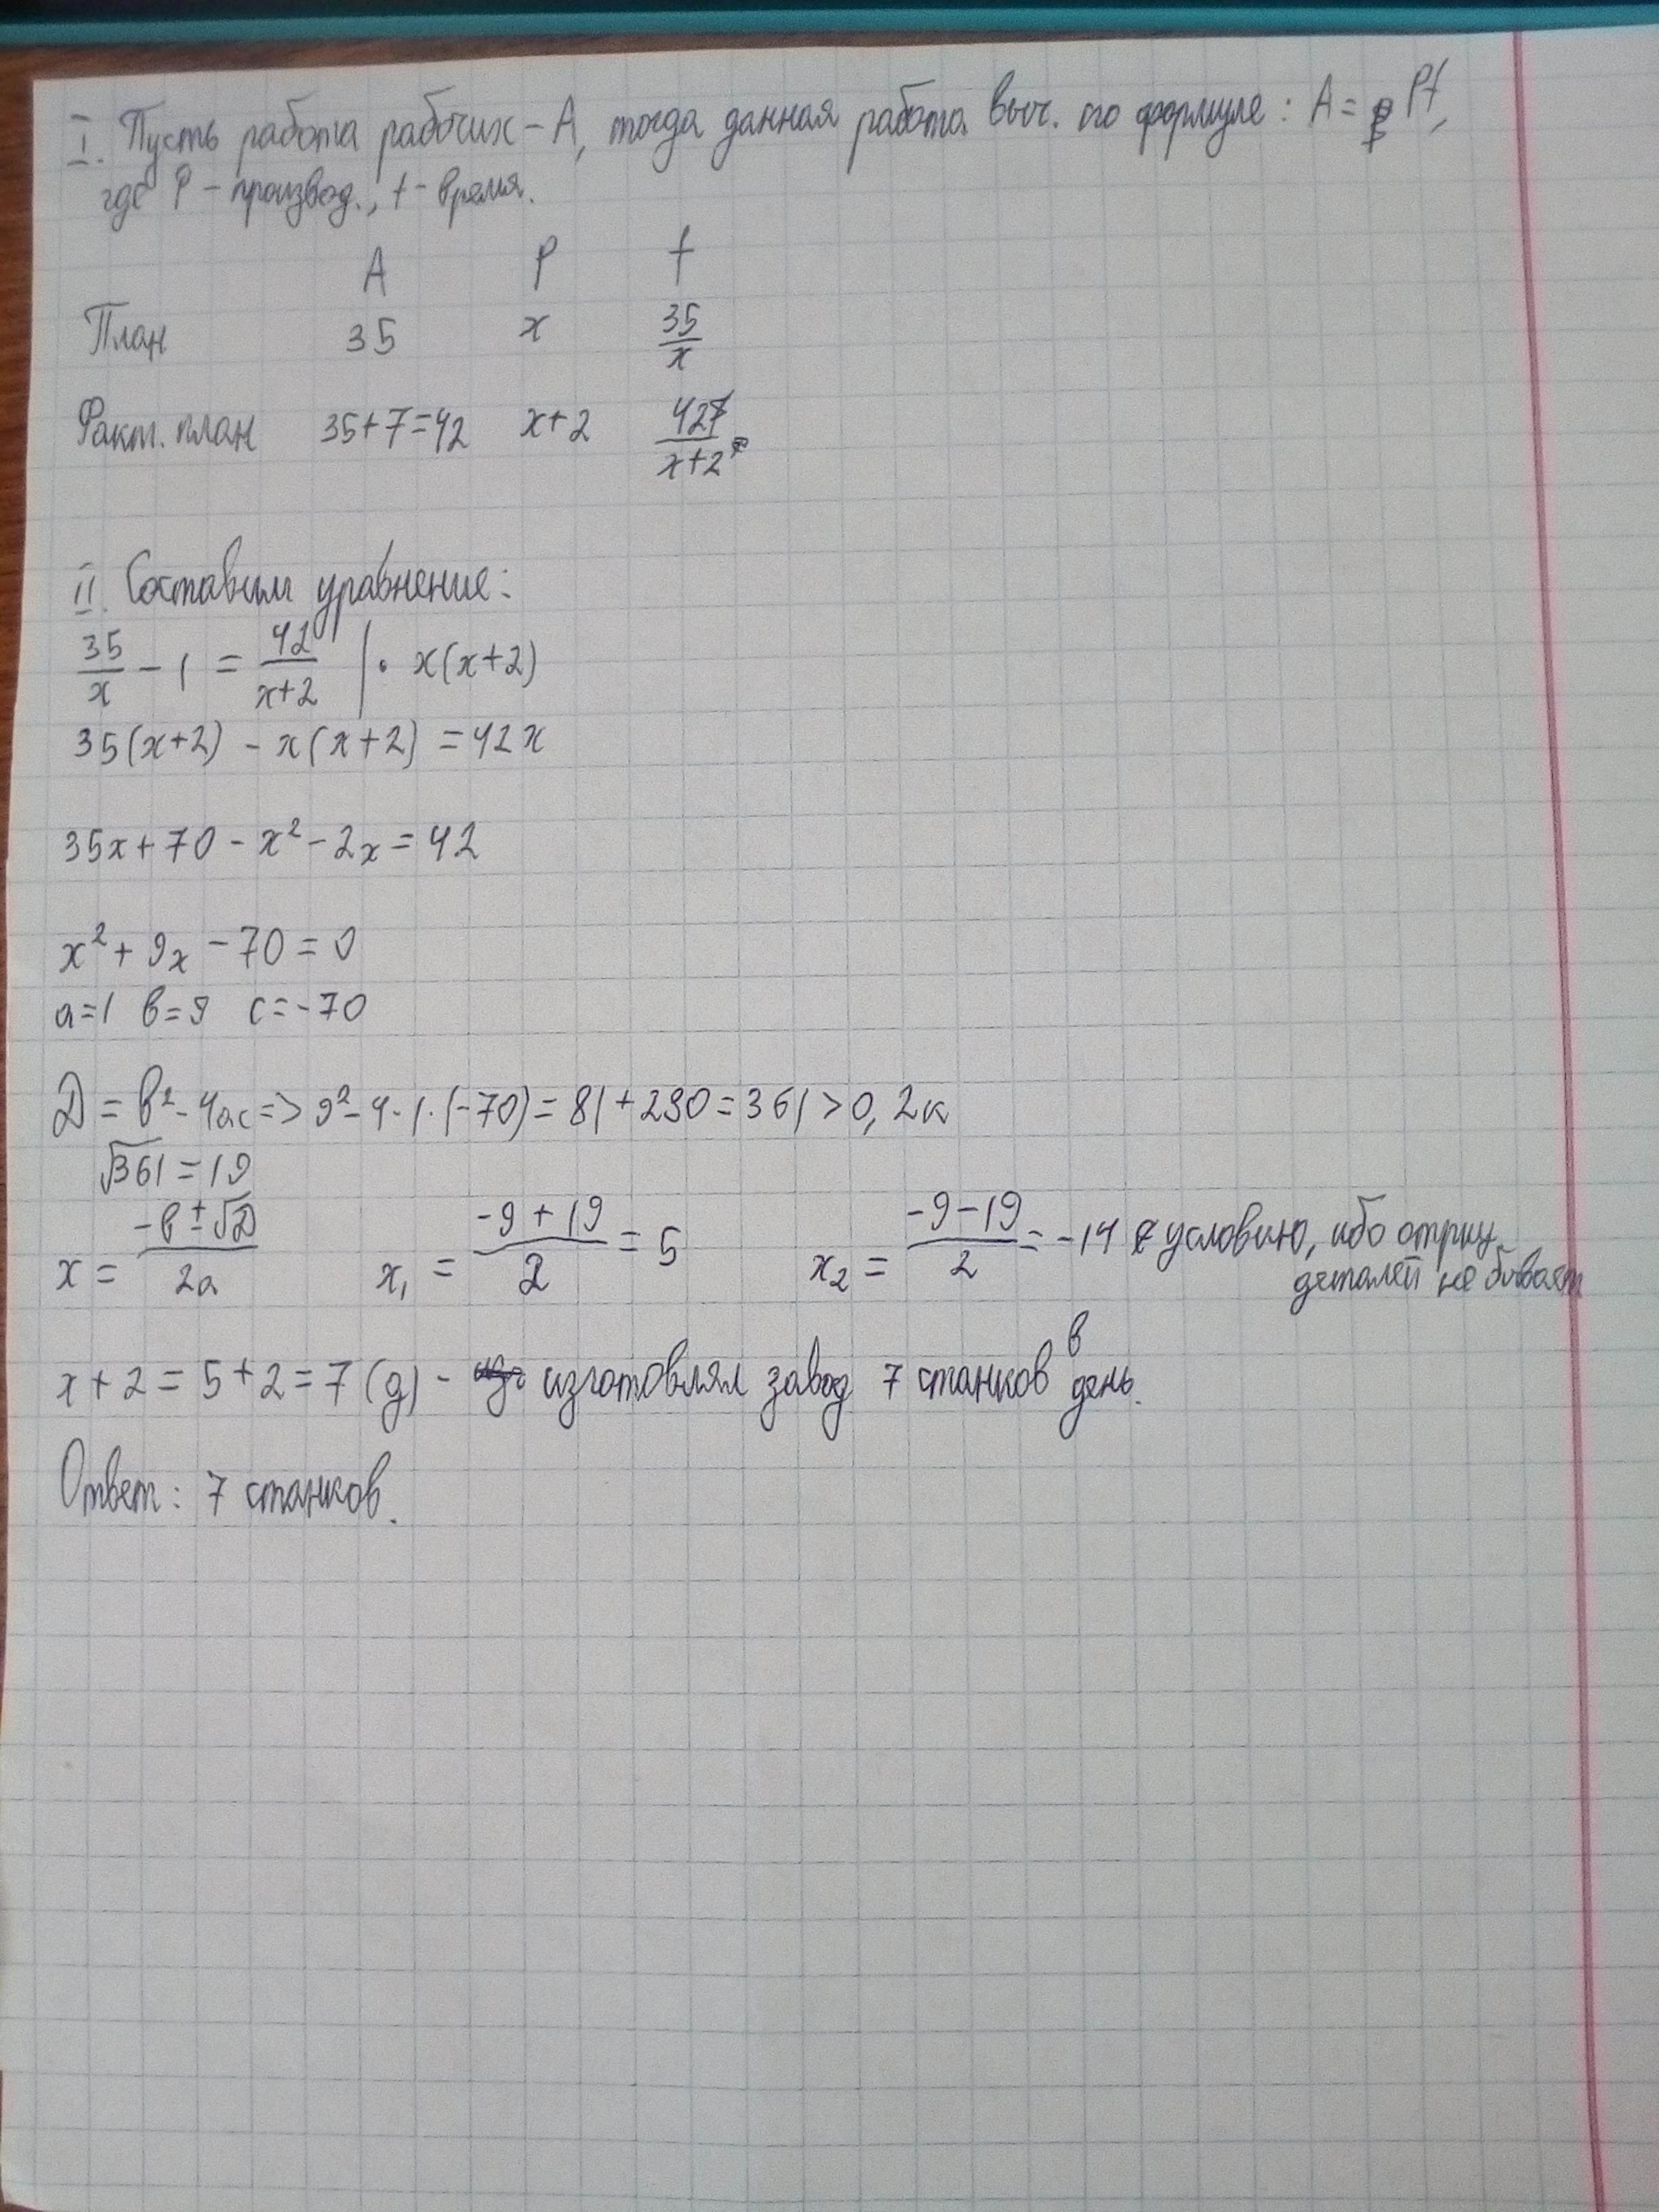 I. Пусть работа рабочих - A, тогда данная работа выч. по формуле: A = Pt,
где P - производ., t - время.
A P t
План 35 x 35/x
Факт. план 35+7=42 x+2 42/x+2
II. Составим уравнение:
35/x - 1 = 42/x+2 | · x(x+2)
35(x+2) - x(x+2) = 42x
35x + 70 - x² - 2x = 42
x² + 9x - 70 = 0
a=1 b=9 c=-70
D = b² - 4ac => 9² - 4·1·(-70) = 81 + 280 = 361 > 0, 2к
√361 = 19
x = -b ± √D/2a x₁ = -9 + 19/2 = 5 x₂ = -9 - 19/2 = -14 ∉ условию, ибо отриц.
деталей не бывает
x + 2 = 5 + 2 = 7 (д) - изготовлял завод 7 станков в день.
Ответ: 7 станков.